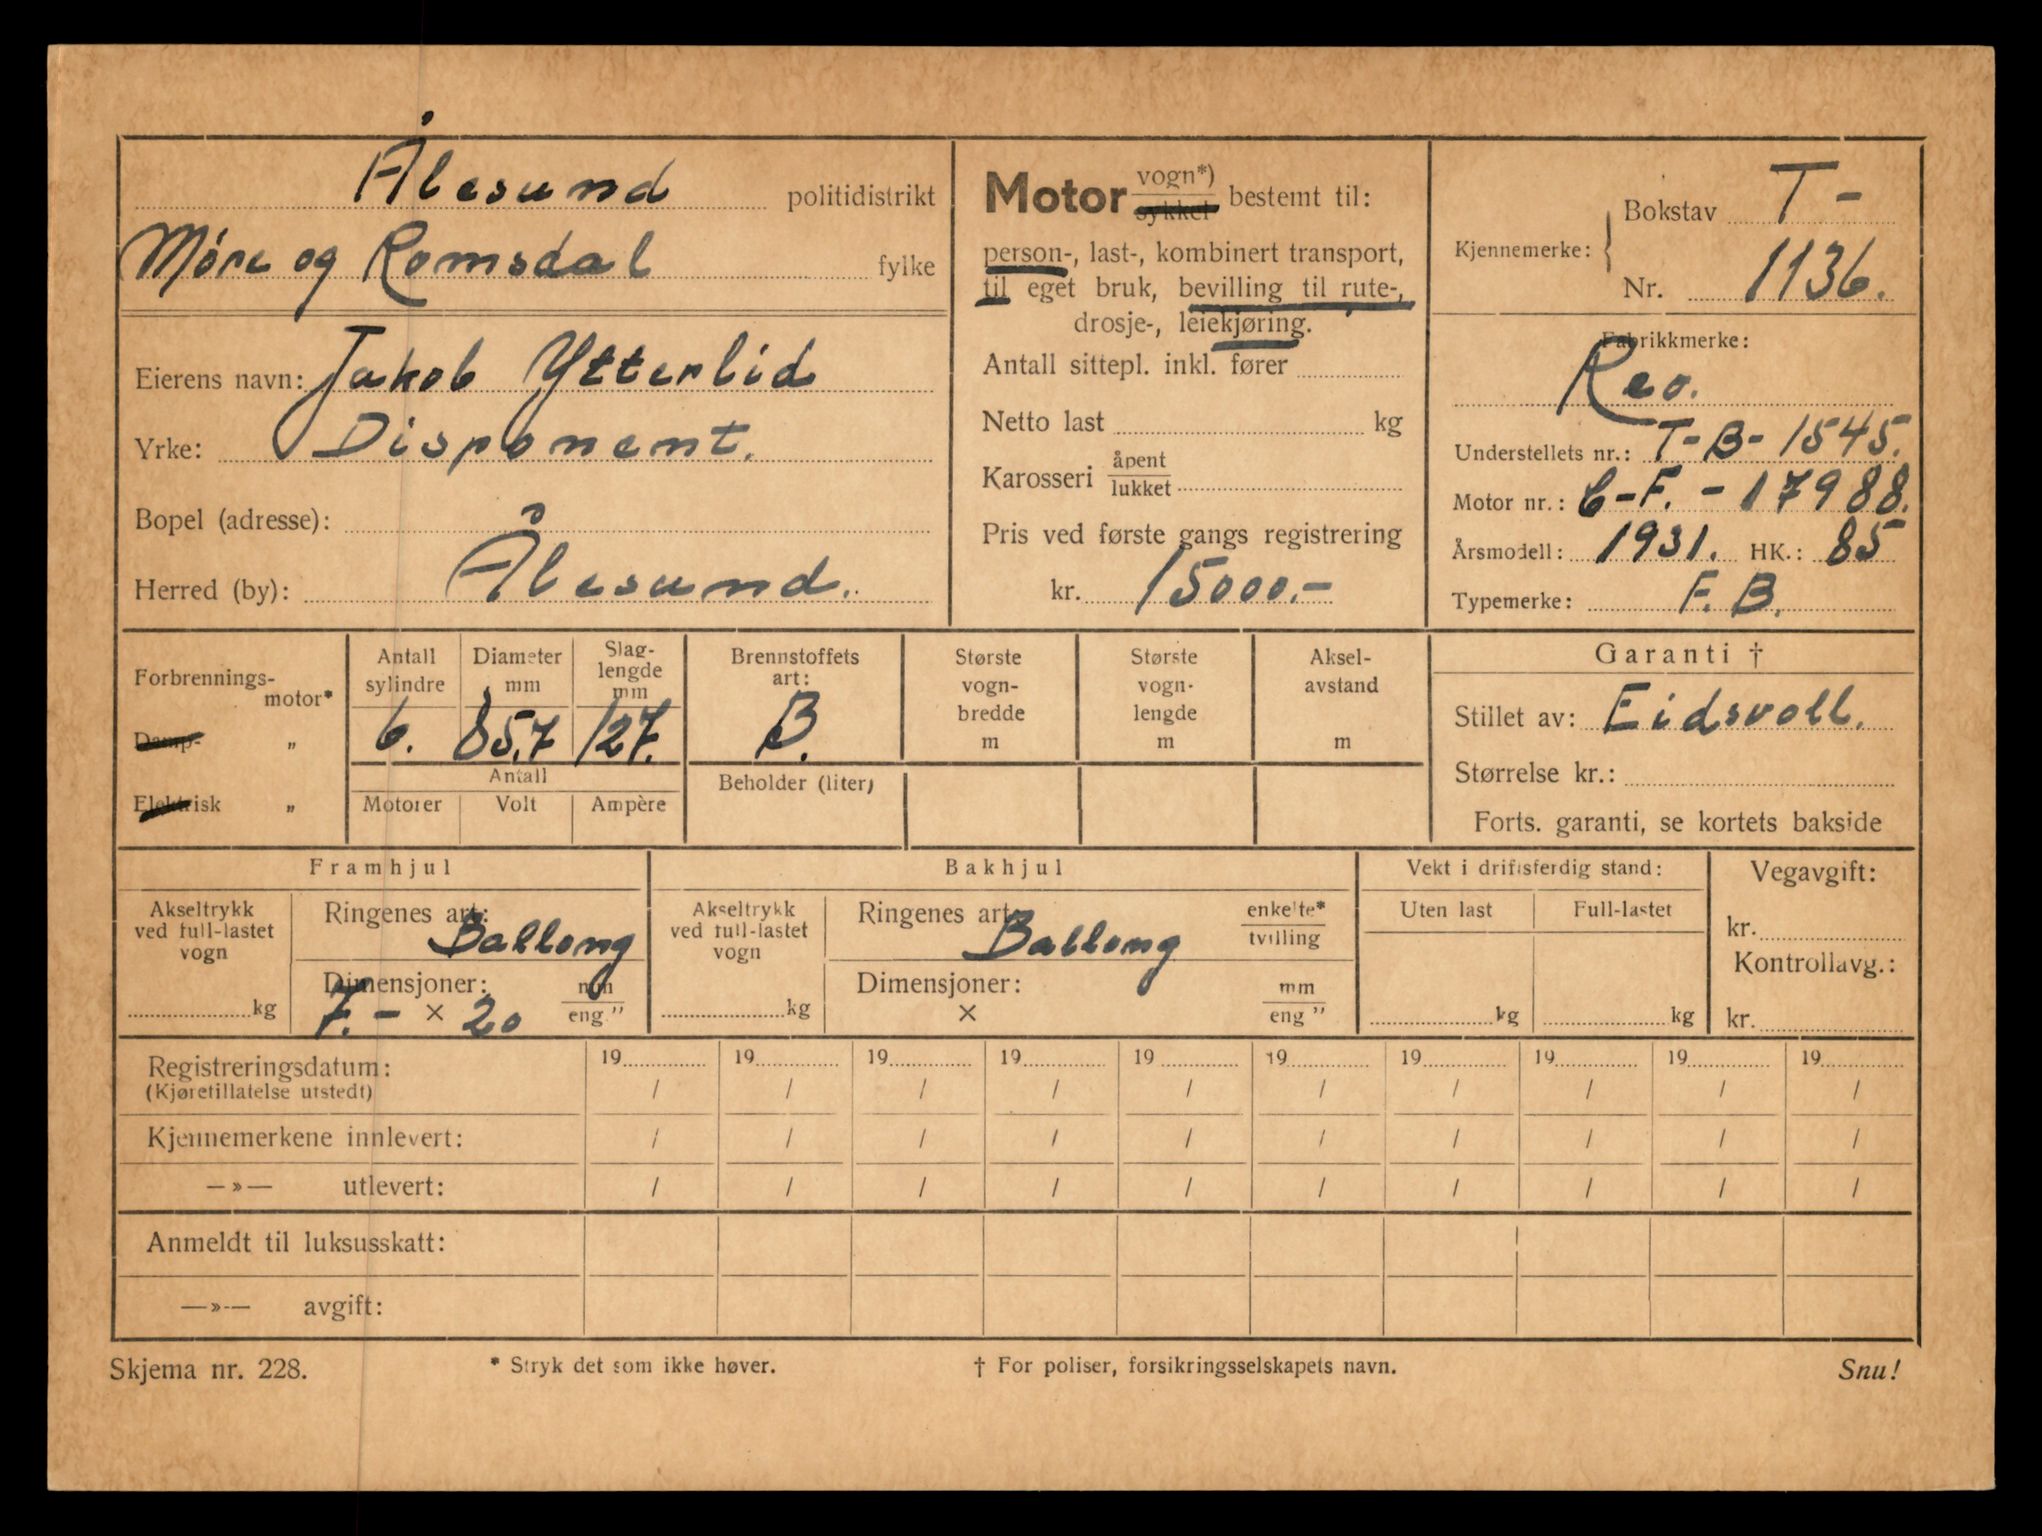 Ålesund politidistrikt
Møre og Romsdal fylke
Eierens navn: Jakob Ytterlid
Yrke: Disponent.
Bopel (adresse):
Herred (by): Ålesund.
Motor vogn*) sykkel bestemt til:
person-, last-, kombinert transport,
til eget bruk, bevilling til rute-,
drosje-, leiekjøring.
Antall sittepl. inkl. fører
Netto last kg
Karosseri åpent lukket
Pris ved første gangs registrering
kr. 15000.-
Kjennemerke: Bokstav T -
Nr. 1136.
Fabrikkmerke:
Reo.
Understellets nr.: T-B-1545.
Motor nr.: 6-F.-17988.
Årsmodell: 1931. HK.: 85
Typemerke: F.B.
Forbrennings-motor*
Damp- "
Elektrisk "
Antall sylindre
6.
Diameter mm
85,7
Slag-lengde mm
127.
Antall
Motorer Volt Ampère
Brennstoffets art:
B.
Beholder (liter)
Største vogn-bredde m
Største vogn-lengde m
Aksel-avstand m
Garanti †
Stillet av: Eidsvoll.
Størrelse kr.:
Forts. garanti, se kortets bakside
Framhjul
Akseltrykk ved full-lastet vogn
kg
Ringenes art: Ballong
Dimensjoner: mm eng "
7.- × 20
Bakhjul
Akseltrykk ved full-lastet vogn
kg
Ringenes art: Ballong
enkelte* tvilling
Dimensjoner: mm eng "
×
Vekt i driftsferdig stand:
Uten last Full-lastet
kg kg
Vegavgift:
kr.
Kontrollavg.:
kr.
Registreringsdatum: 19 19 19 19 19 19 19 19 19 19
(Kjøretillatelse utstedt) / / / / / / / / / /
Kjennemerkene innlevert: / / / / / / / / / /
—»— utlevert: / / / / / / / / / /
Anmeldt til luksusskatt:
—»— avgift:
Skjema nr. 228. * Stryk det som ikke høver. † For poliser, forsikringsselskapets navn. Snu!